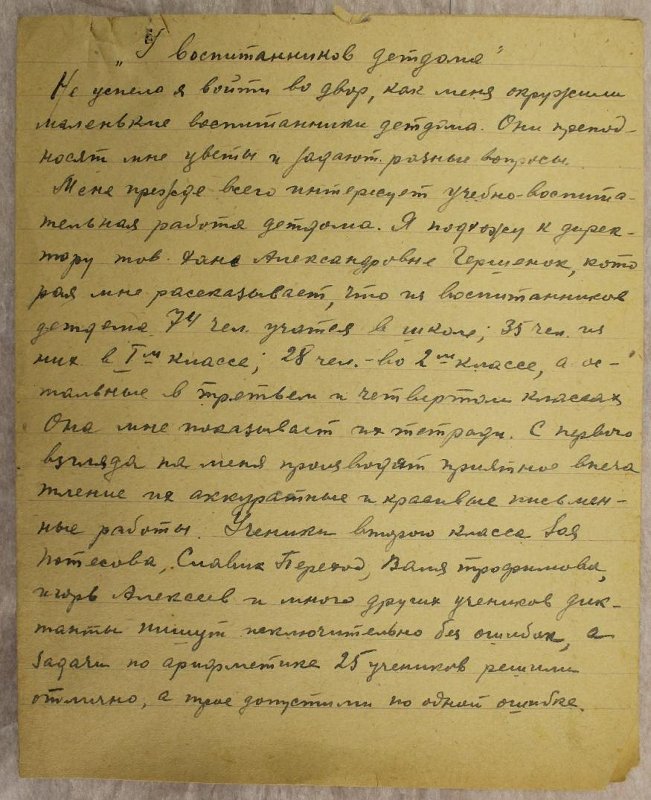 „У воспитанников детдома"
Не успела я войти во двор, как меня окружили
маленькие воспитанники детдома. Они препод-
носят мне цветы и задают разные вопросы.
Меня прежде всего интересует учебно-воспита-
тельная работа детдома. Я подхожу к дирек-
тору тов. Александровне кото
рая мне рассказывает, что из воспитанников
детдома 74 чел. учатся в школе; 35 чел. из
них в Iм классе; 28 чел. - во 2м классе, а ос-
тальные в третьем и четвертом классах
Она мне показывает их тетради. С первого
взгляда на меня производят приятное впеча
тление их аккуратные и красивые письмен-
ные работы. Ученики второго класса Зоя
Потесова, Славик Переход, Валя Трофимова,
Игорь Алексеев и много других учеников дик-
танты пишут исключительно без ошибок, а
задачи по арифметике 25 учеников решили
отлично, а трое допустили по одной ошибке.